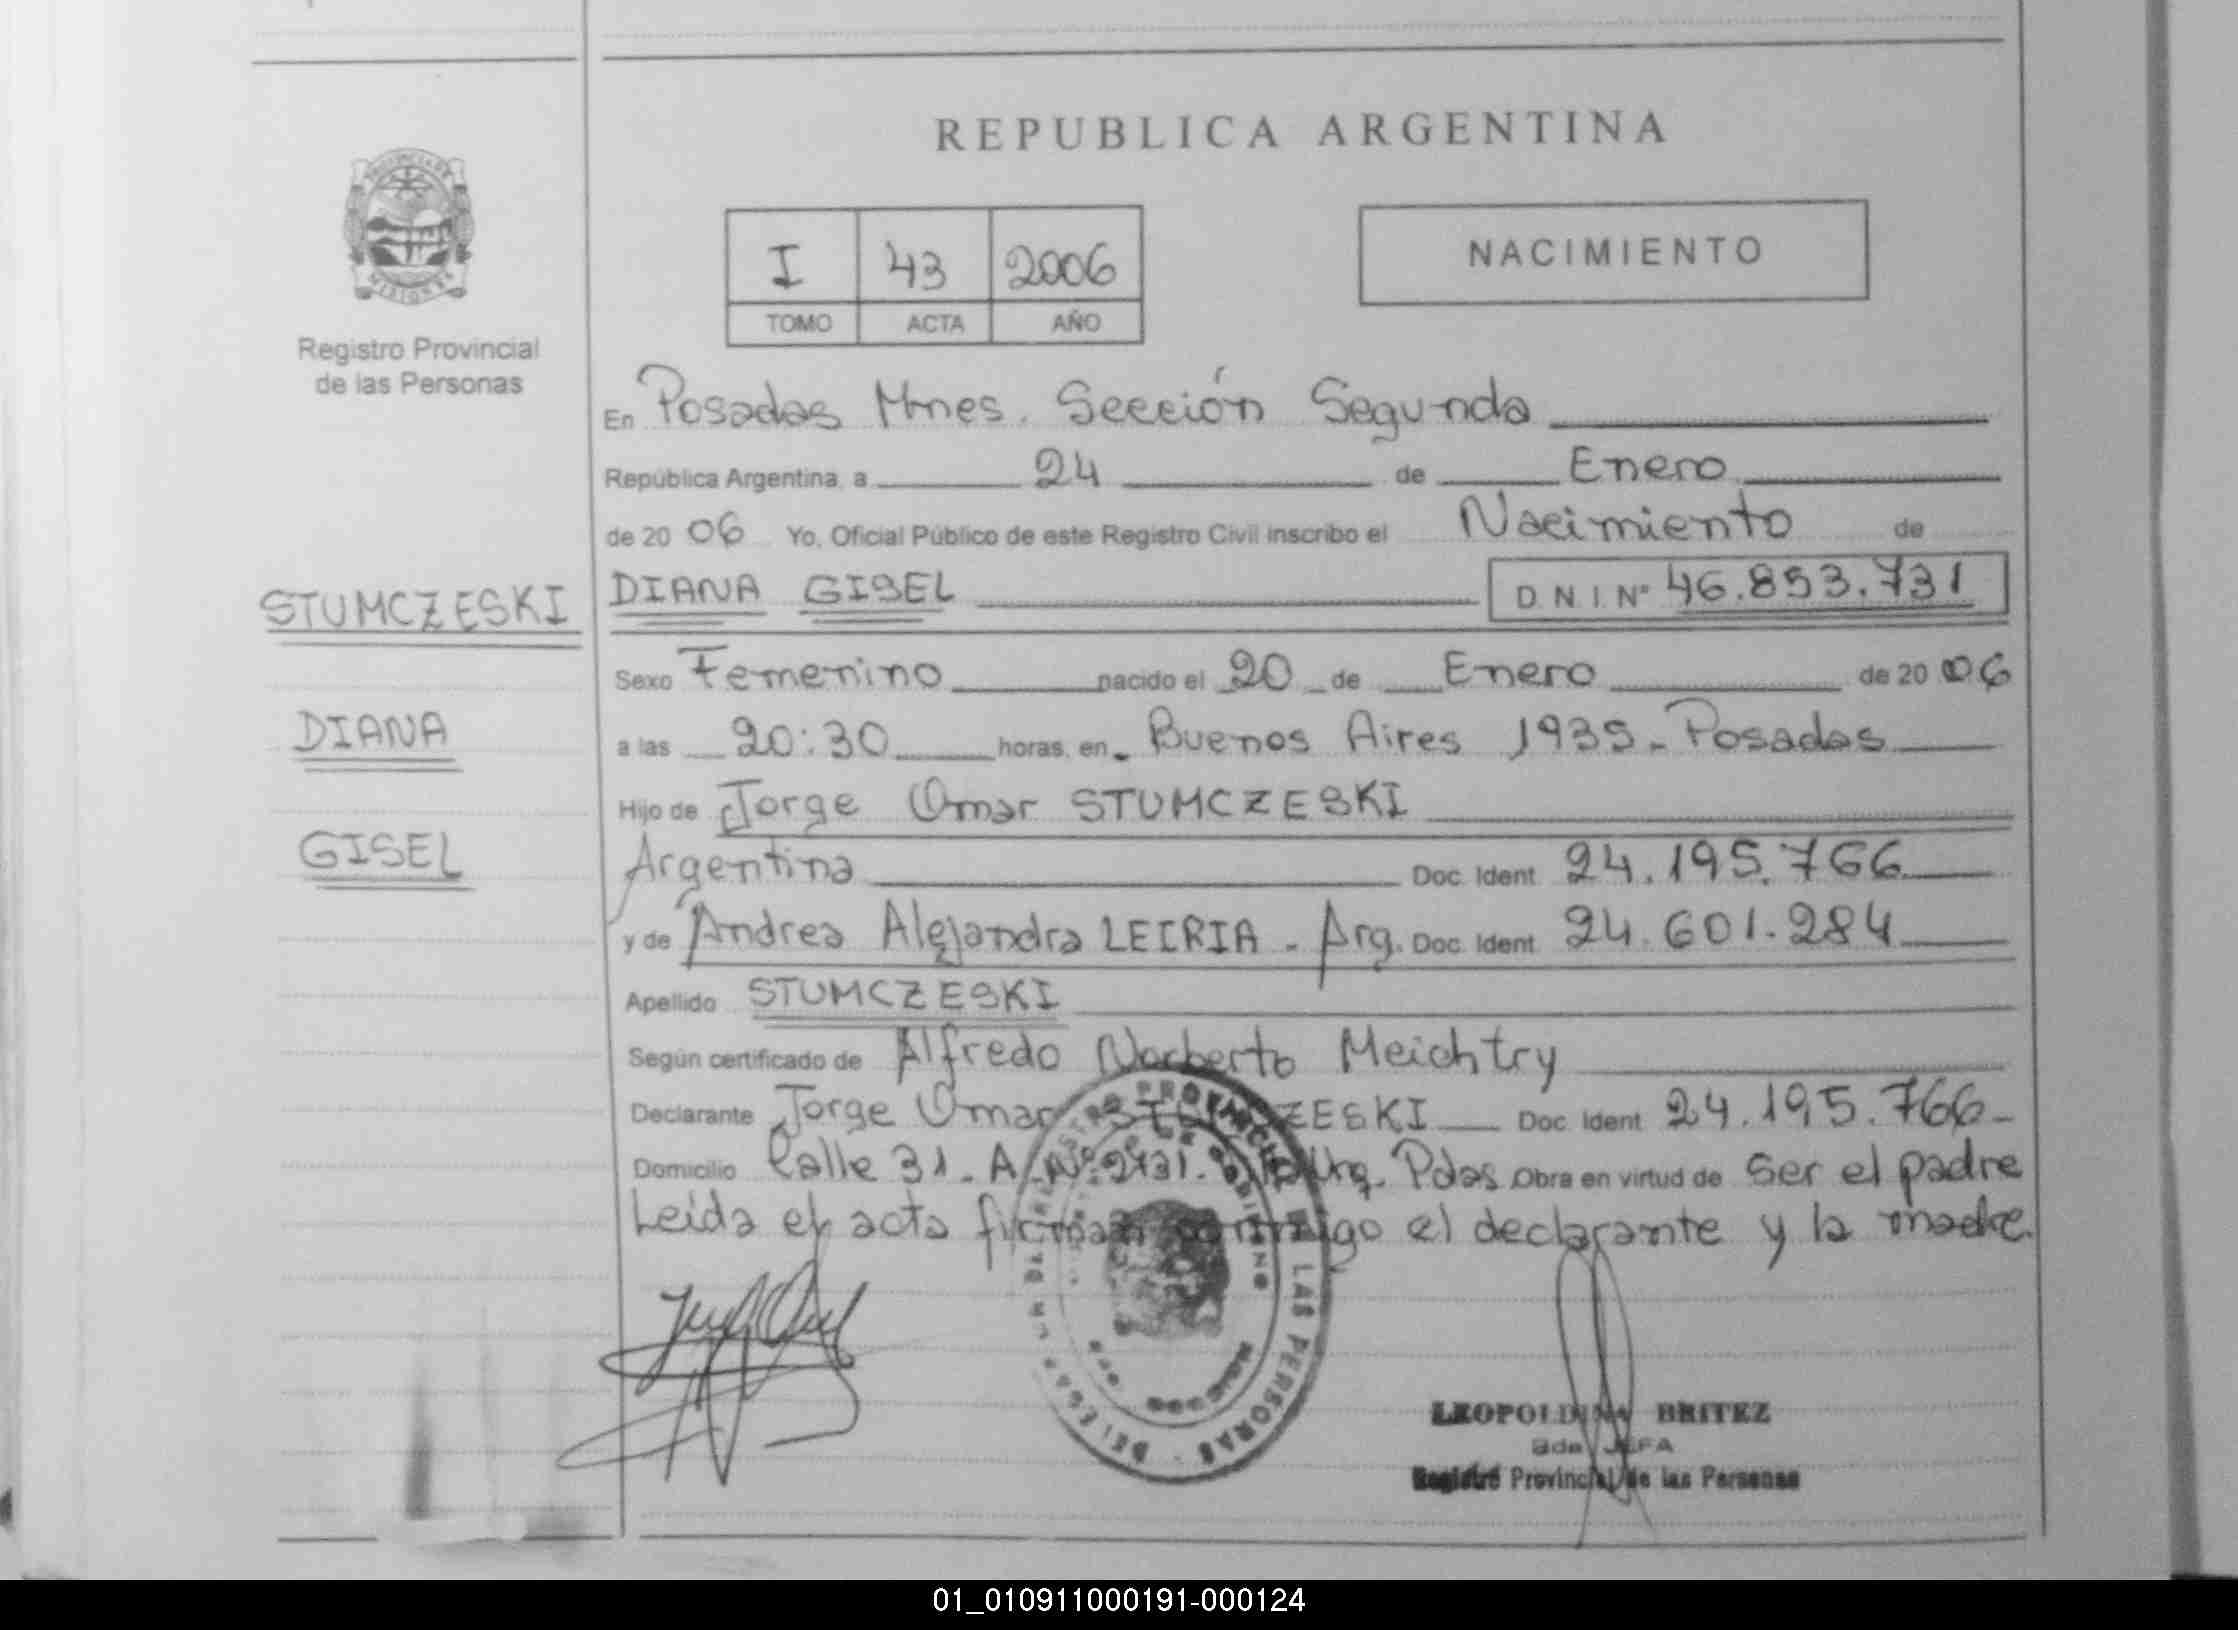 REPUBLICA ARGENTINA
PROVINCIA DE
MISIONES
Registro Provincial
de las Personas
I 43 2006
TOMO ACTA AÑO
NACIMIENTO
En Posadas Mnes. Sección Segunda
República Argentina, a 24 de Enero
de 20 06 Yo, Oficial Público de este Registro Civil inscribo el Nacimiento de
STUMCZESKI DIANA GISEL D N I Nº 46.853.731
Sexo Femenino nacido el 20 de Enero de 20 06
DIANA
a las 20:30 horas, en Buenos Aires 1935 - Posadas
Hijo de Jorge Omar STUMCZESKI
GISEL
Argentina Doc. Ident. 24.195.766
y de Andrea Alejandra LEIRIA - Arg. Doc. Ident. 24.601.284
Apellido STUMCZESKI
Según certificado de Alfredo Norberto Meichtry
Declarante Jorge Omar STUMCZESKI Doc. Ident. 24.195.766-
Domicilio Calle 31 - A Nº 2731. Pdas Obra en virtud de Ser el padre
Leída el acta firman conmigo el declarante y la madre.
REGISTRO PROVINCIAL DE LAS PERSONAS
LEOPOLDINA BRITEZ
2da JEFA
Registro Provincial de las Personas
01_010911000191-000124